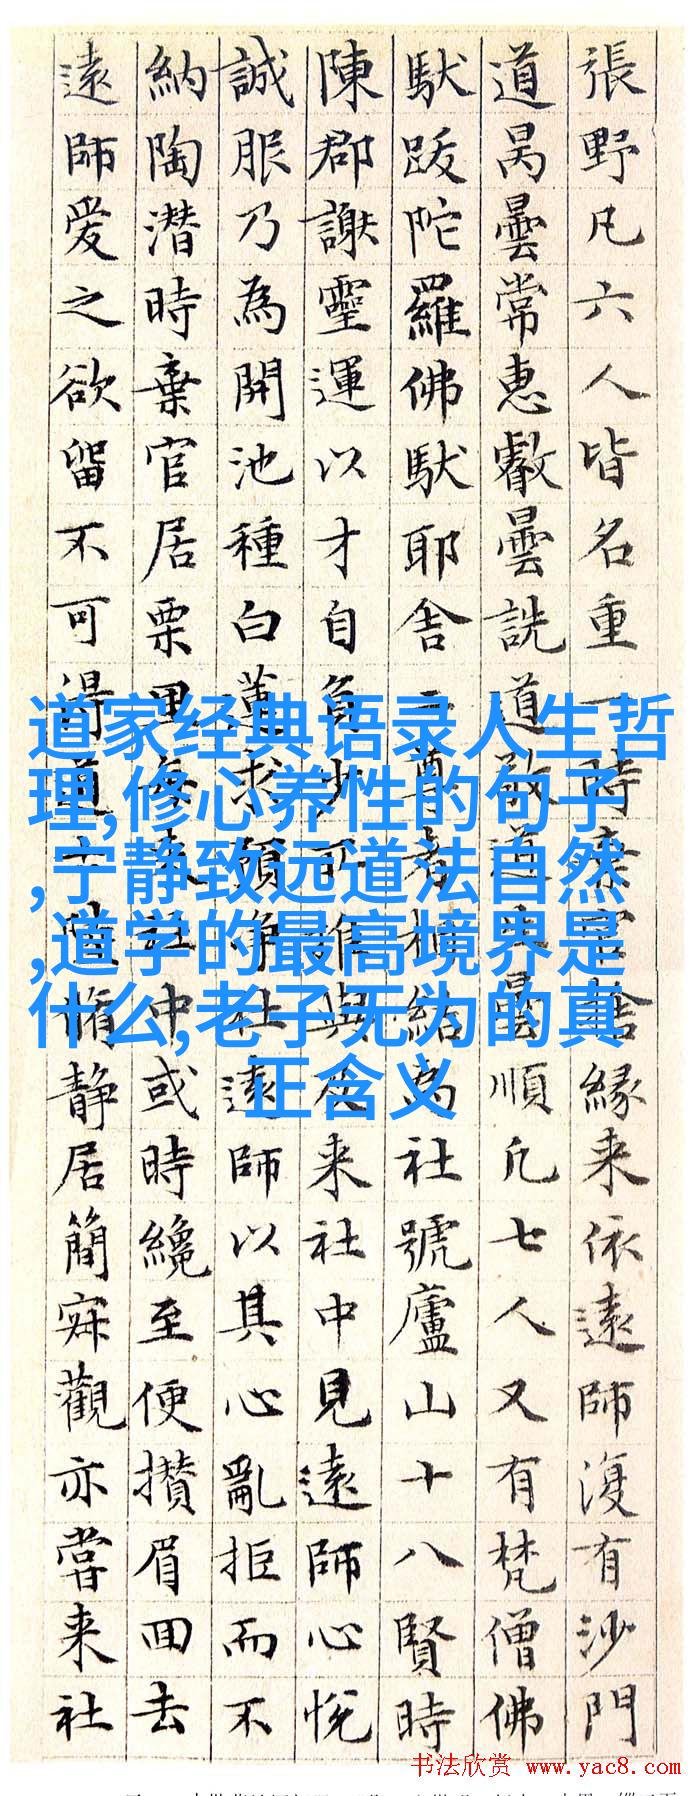 張野凡六人皆名重一時棄官捨緣来依遠師復有沙門
道昺曇常惠叡曇詵道敬道生曇順凡七人又有梵僧佛
馱跋陀羅佛馱耶舍二尊者相結為社號廬山十八賢時
陳郡謝靈運以才自負少所推與及来社中見遠師心悅
誠服乃為開池種白蓮求預净社遠師以其心亂拒而不
納陶潛時棄官居栗里每来社中或時纔至便攢眉回去
遠師爱之欲留不可得道士陸脩静居簡寂觀亦嘗来社
道家经典语录人生哲
理,修心养性的句子
,宁静致远道法自然
,道学的最高境界是
什么,老子无为的真
正含义
书法欣赏 www.yac8.com